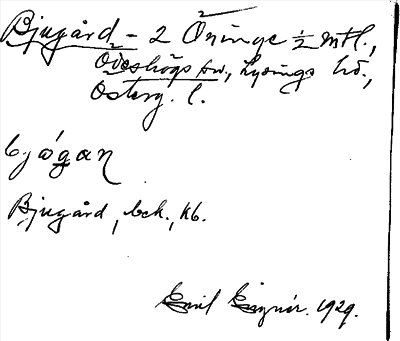 Bjugård - 2 Öninge 1/2 mtl.,
Ödeshögs sn., Lysings hd.,
Österg. l.
bjøgaɳ
Bjugård, bek., kb.
Emil 1929.